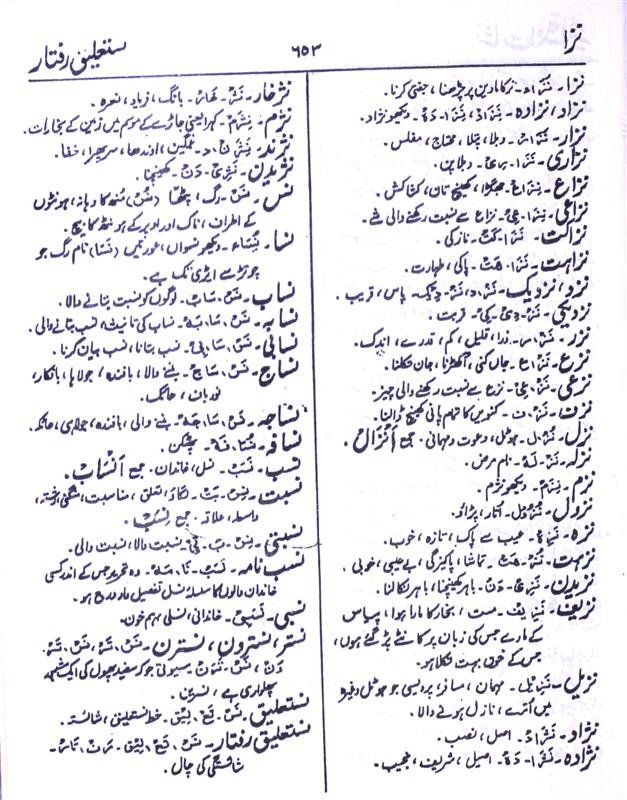 نزا
۶۵۳
ستعلیق رفتار
نزا۔ نَزَا۔ نر کا مادین پر چڑھنا، جفتی کرنا۔
نزاد، نزادہ۔ نَزَادْ، نَزَا۔ دَہْ۔ دیکھو نژاد۔
نزار۔ نَزَارْ۔ دبلا، پتلا، محتاج، مفلس۔
نزاری۔ نَزَا۔ رِیْ۔ دبلا پن۔
نزاع۔ نِزَاعْ۔ جھگڑا، کھینچ تان، کشاکش۔
نزاعی۔ نِزَا۔ عِیْ۔ نزاع سے نسبت رکھنے والی شے۔
نزاکت۔ نَزَا۔ کَتْ۔ نازکی۔
نزاہت۔ نَزَا۔ هَتْ۔ پاکی، طہارت۔
نزد، نزدیک۔ نَزْد، نَزْ۔ دِیْک۔ پاس، قریب۔
نزدیکی۔ نَزْ۔ دِیْ۔ کِیْ۔ قربت۔
نزر۔ نَزْر۔ ذرا، قلیل، کم، قدرے، اندک۔
نزع۔ نَزْع۔ جاں کنی، اکھڑنا، جان نکلنا۔
نزعی۔ نَزْ۔ عِیْ۔ نزع سے نسبت رکھنے والی چیز۔
نزف۔ نَزْف۔ کنویں کا تمام پانی کھینچ ڈالنا۔
نزل۔ نُزْل۔ ہوٹل، دعوت و مہمانی۔ جمع اَنْزَال۔
نزلہ۔ نَزْ۔ لَہْ۔ نام مرض۔
نزم۔ نِزْم۔ دیکھو نژم۔
نزول۔ نُزُوْل۔ اُتار، پڑاؤ۔
نزہ۔ عیب سے پاک، تازہ، خوب۔
نزہت۔ نُزْ۔ هَتْ۔ تماشا، پاکیزگی، بے عیبی، خوبی۔
نزیدن۔ نَزِیْ۔ دَنْ۔ باہر کھینچنا، باہر نکالنا۔
نزیف۔ نَزِیْف۔ مست، بخار کا مارا ہوا، پیاس
کے مارے جس کی زبان پر کانٹے پڑ گئے ہوں،
جس کے خون بہت نکلا ہو۔
نزیل۔ نَزِیْل۔ مہمان، مسافر پردیسی جو ہوٹل وغیرہ
میں اُترے، نازل ہونے والا۔
نژاد۔ نَژَادْ۔ اصل، نسب۔
نژادہ۔ نَژَا۔ دَہْ۔ اصیل، شریف، نجیب۔
نژخار۔ نَژْ۔ خَارْ۔ بانگ، فریاد، نعرہ۔
نژم۔ نِژْم۔ کہرا یعنی جاڑے کے موسم میں زمین کے بخارات۔
نژند۔ غمگین، اوندھا، سر پھرا، خفا۔
نژیدن۔ نَژِیْ۔ دَنْ۔ کھینچنا۔
نس۔ نَسْ۔ رگ، پٹھا (نُسْ) مُنھ کا دہانہ، ہونٹوں
کے اطراف، ناک اور اوپر کے ہونٹھ کا بیچ۔
نسا۔ نِسَاء۔ دیکھو نسواں، عورتیں (نَسَا) نام رگ جو
جوڑ سے ایڑی تک ہے۔
نساب۔ نَسْ۔ سَابْ۔ لوگوں کو نسبت بتانے والا۔
نسابہ۔ نَسْ۔ سَا۔ بَہْ۔ نساب کی تانیث، نسب بتانے والی۔
نسابی۔ نَسْ۔ سَا۔ بِیْ۔ نسب بتانا، نسب بیان کرنا۔
نساج۔ نَسْ۔ سَاجْ۔ بننے والا، بافندہ، جولاہا، بافکار،
نوربان، حائک۔
نساجہ۔ نَسْ۔ سَا۔ جَہْ۔ بننے والی، بافندہ، جولاہی، حائکہ۔
نسافہ۔ نُسَا۔ فَہْ۔ پھٹکن۔
نسب۔ نَسَبْ۔ نسل، خاندان۔ جمع اَنْسَاب۔
نسبت۔ نِسْ۔ بَتْ۔ لگاؤ، تعلق، مناسبت، منگنی، رشتہ،
واسطہ، علاقہ۔ جمع نِسَبْ۔
نسبتی۔ نِسْ۔ بَ۔ تِیْ۔ نسبت والا، نسبت والی۔
نسب نامہ۔ نَسَبْ۔ نَا۔ مَہْ۔ وہ تحریر جس کے اندر کسی
خاندان والوں کا سلسلہ نسل تفصیل وار درج ہو۔
نسبی۔ نَسَبِیْ۔ خاندانی، نسلی، ہم خون۔
نستر، نسترون، نسترن۔ نَسْ۔ تَرْ، نَسْ۔ تَرْ۔
وَنْ، نَسْ۔ تَرَنْ۔ سیوتی جو کہ سفید پھولوں کی ایک قسم
پھلواری ہے، نسرین۔
نستعلیق۔ نَسْ۔ تَعْ۔ لِیْق۔ خط نستعلیق، شائستہ۔
نستعلیق رفتار۔ نَسْ۔ تَعْ۔ لِیْق۔ رَفْ۔ تَارْ۔
شائستگی کی چال۔